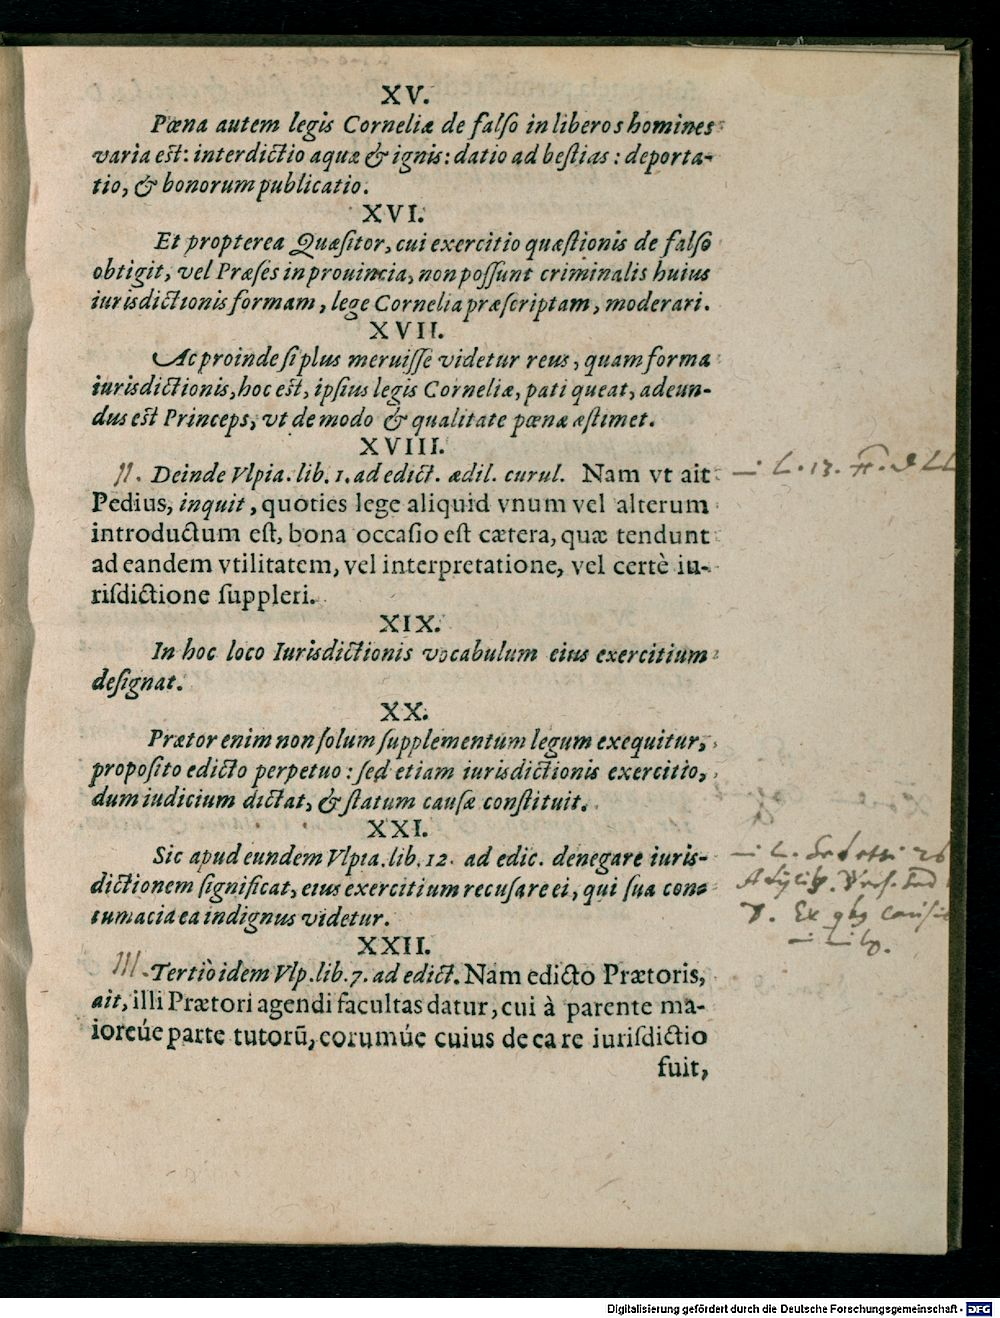 XV.
Pœna autem legis Corneliæ de falſo in liberos homines
varia est: interdictio aquæ & ignis: datio ad beſtias: deporta-
tio, & bonorum publicatio.
XVI.
Et propterea Quæſitor, cui exercitio quæſtionis de falſo
obtigit, vel Præſes in prouincia, non poſſunt criminalis huius
iurisdictionis formam, lege Cornelia præſcriptam, moderari.
XVII.
Ac proinde ſi plus meruiſſe videtur reus, quam forma
iurisdictionis, hoc est, ipſius legis Corneliæ, pati queat, adeun-
dus est Princeps, vt de modo & qualitate pœnæ æſtimet.
XVIII.
II. Deinde Vlpia. lib. 1. ad edict. ædil. curul. Nam vt ait
Pedius, inquit, quoties lege aliquid vnum vel alterum
introductum eſt, bona occaſio eſt cætera, quæ tendunt
ad eandem vtilitatem, vel interpretatione, vel certè iu-
riſdictione ſuppleri.
L. 13. ff. d LL
XIX.
In hoc loco Iurisdictionis vocabulum eius exercitium
deſignat.
XX.
Prætor enim non ſolum ſupplementum legum exequitur,
propoſito edicto perpetuo: ſed etiam iurisdictionis exercitio,
dum iudicium dictat, & ſtatum cauſæ conſtituit.
XXI.
Sic apud eundem Vlpia. lib. 12. ad edic. denegare iuris-
dictionem ſignificat, eius exercitium recuſare ei, qui ſua con-
tumacia ea indignus videtur.
L. 26
Ex cauſis
XXII.
III. Tertiò idem Vlp. lib. 7. ad edict. Nam edicto Prætoris,
ait, illi Prætori agendi facultas datur, cui à parente ma-
ioreúe parte tutorū, eorumúe cuius de ea re iuriſdictio
fuit,
Digitalisierung gefördert durch die Deutsche Forschungsgemeinschaft - DFG